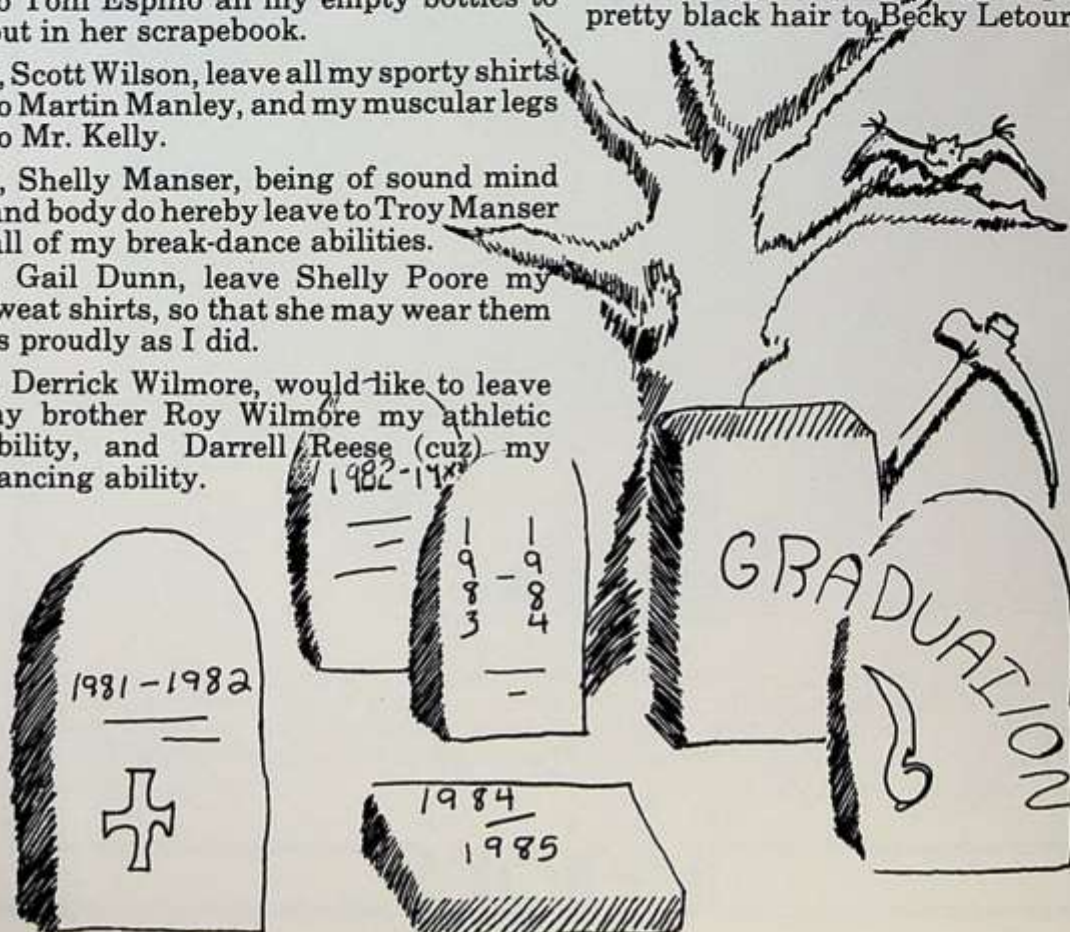 Tom Espino all my empty bottles to
put in her scrapebook.
, Scott Wilson, leave all my sporty shirts
o Martin Manley, and my muscular legs
o Mr. Kelly.
, Shelly Manser, being of sound mind
and body do hereby leave to Troy Manser
all of my break-dance abilities.
Gail Dunn, leave Shelly Poore my
weat shirts, so that she may wear them
s proudly as I did.
Derrick Wilmore, would like to leave
y brother Roy Wilmore my athletic
bility, and Darrell Reese (cuz) my
ancing ability.
pretty black hair to Becky Letour
1982-19
1983-1984
GRADUATION
1981-1982
1984
1985